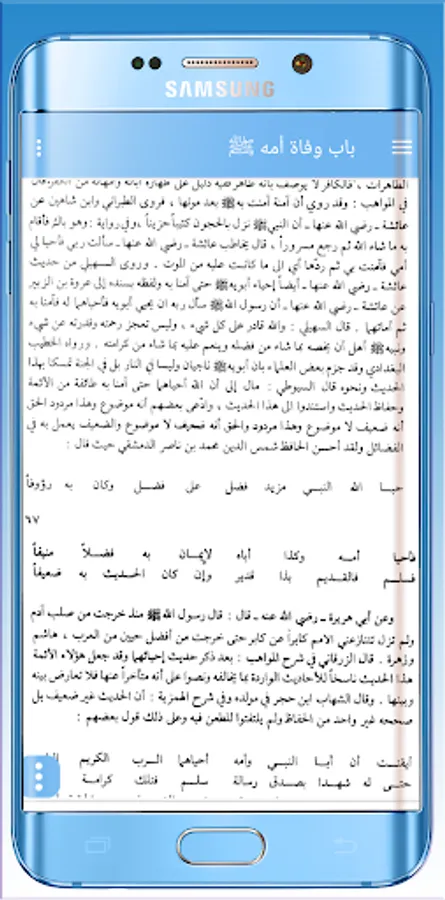 SAMSUNG
باب وفاة أمه ﷺ
الطاهرات ، فالكافر لا يوصف بأنه طاهر ففيه دليل على طهارة آبائه وأمهاته من
في المواهب : وقد روي أن آمنة آمنت به ﷺ بعد موتها ، فروى الطبراني وابن شاهين عن
عائشة - رضي الله عنها - أن النبي ﷺ نزل بالحجون كئيباً حزيناً ، وفي رواية : وهو باك فأقام
به ما شاء الله ثم رجع مسروراً ، قال يخاطب عائشة - رضي الله عنها - سألت ربي فأحيا لي
أمي فآمنت بي ثم ردّها أي الى ما كانت عليه من الموت . وروى السهيلي من حديث
عائشة - رضي الله عنها - أيضاً إحياء أبويه ﷺ حتى آمنا به ولفظه بسنده إلى عروة بن الزبير
عن عائشة - رضي الله عنها - أن رسول الله ﷺ سأل ربه ان يحيي أبويه فأحياهما له فآمنا به
ثم أماتهما . قال السهيلي : والله قادر على كل شيء ، وليس تعجز رحمته وقدرته عن شيء
ونبيه ﷺ أهل أن يخصه بما شاء من فضله وينعم عليه بما شاء من كرامته . ورواه الخطيب
البغدادي وقد جزم بعض العلماء بان أبويه ﷺ ناجيان وليسا في النار بل في الجنة تمسكا بهذا
الحديث ونحوه قال السيوطي : مال إلى أن الله أحياهما حتى آمنا به طائفة من الأئمة
وحفاظ الحديث واستندوا الى هذا الحديث ، وادّعى بعضهم أنه موضوع وهذا مردود الحق
أنه ضعيف لا موضوع وهذا مردود والحق أنه ضعيف لا موضوع والضعيف يعمل به في
الفضائل ولقد أحسن الحافظ شمس الدين محمد بن ناصر الدمشقي حيث قال :
حبا الله النبي مزيد فضل على فضل وكان به رؤوفاً
٦٧
فأحيا أمه وكذا أباه لإيمان به فضلاً منيفاً
فسلم فالقديم بذا قدير وإن كان الحديث به ضعيفاً
وعن أبي هريرة - رضي الله عنه - قال : قال رسول الله ﷺ منذ خرجت من صلب آدم
ولم تزل تتنازعني الامم كابراً عن كابر حتى خرجت من أفضل حيين من العرب ، هاشم
وزهرة . قال الزرقاني في شرح المواهب : بعد ذكر حديث إحيائهما وقد جعل هؤلاء الأئمة
هذا الحديث ناسخاً للأحاديث الواردة بما يخالفه ونصوا على أنه متأخراً عنها فلا تعارض بينه
وبينها . وقال الشهاب ابن حجر في مولده وفي شرح الهمزية : أن الحديث غير ضعيف بل
صححه غير واحد من الحفاظ ولم يلتفتوا للطعن فيه وعلى ذلك قول بعضهم :
أيقنت أن أبا النبي وأمه أحياهما الرب الكريم
حتى له شهدا بصدق رسالة سلم فتلك كرامة